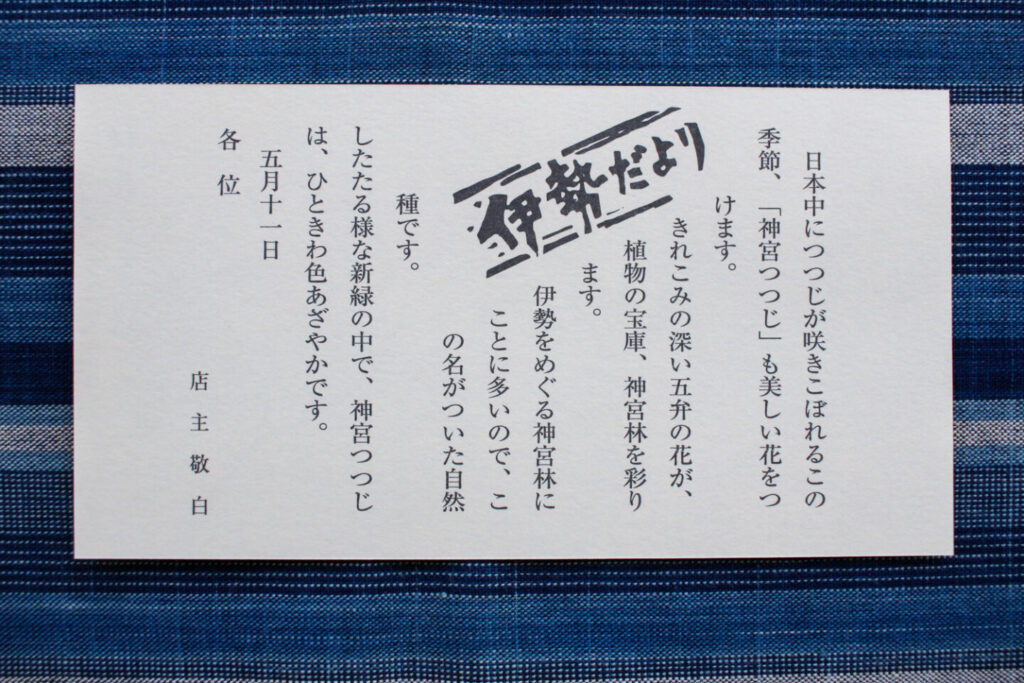 伊勢だより
日本中につつじが咲きこぼれるこの
季節、「神宮つつじ」も美しい花をつ
けます。
きれこみの深い五弁の花が、
植物の宝庫、神宮林を彩り
ます。
伊勢をめぐる神宮林に
ことに多いので、こ
の名がついた自然
種です。
したたる様な新緑の中で、神宮つつじ
は、ひときわ色あざやかです。
五月十一日
各位
店主敬白